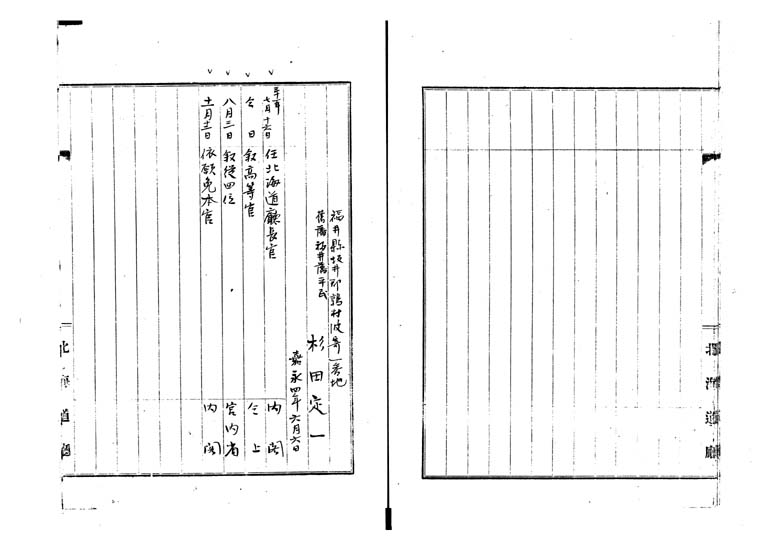 北海道廳
福井縣坂井郡鶉村波寄一番地
舊藩福井藩平民
杉田定一
嘉永四年六月六日
三十一年七月十六日 任北海道廳長官 内閣
仝日 敍高等官 仝上
八月三日 敍從四位 宮内省
十一月十二日 依願免本官 内閣
北海道廳